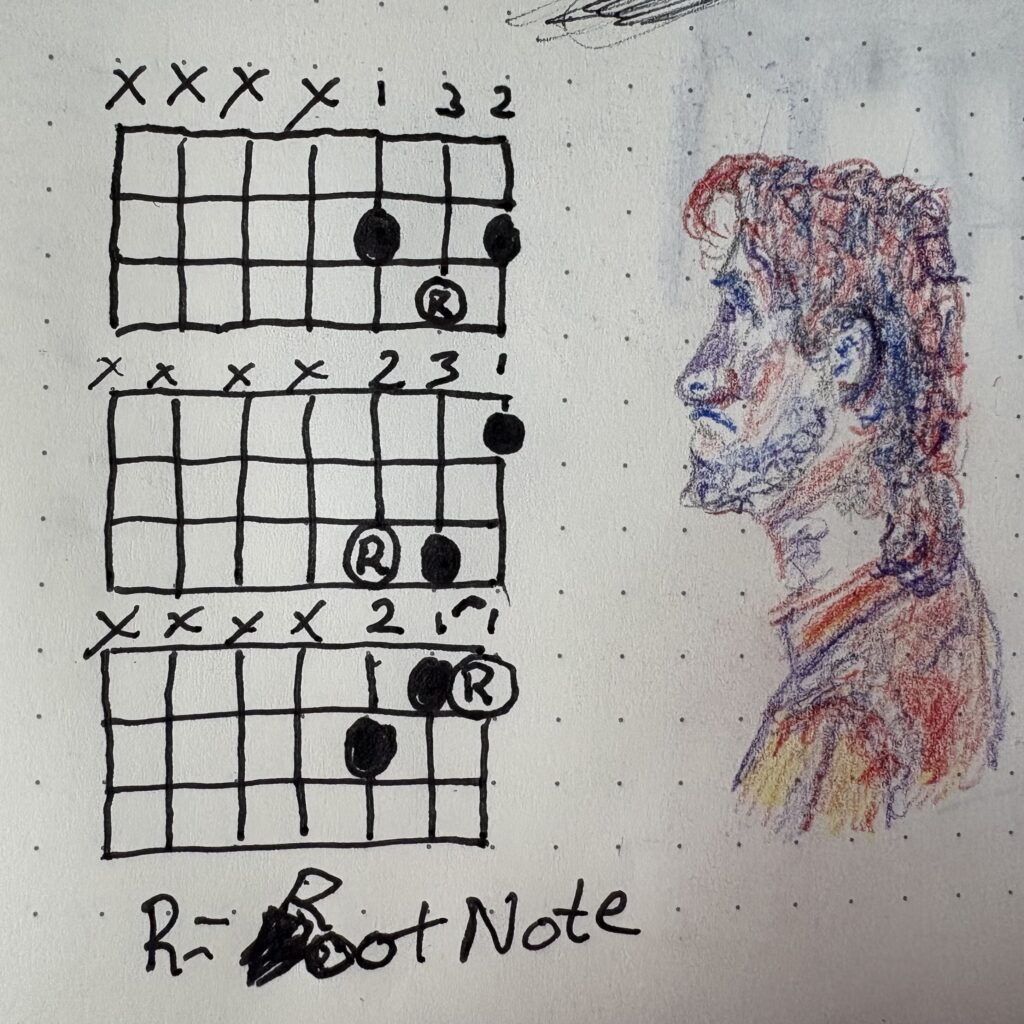 X X X X 1 3 2
R
X X X X 2 3 1
R
X X X X 2 1 1
R
R = Root Note